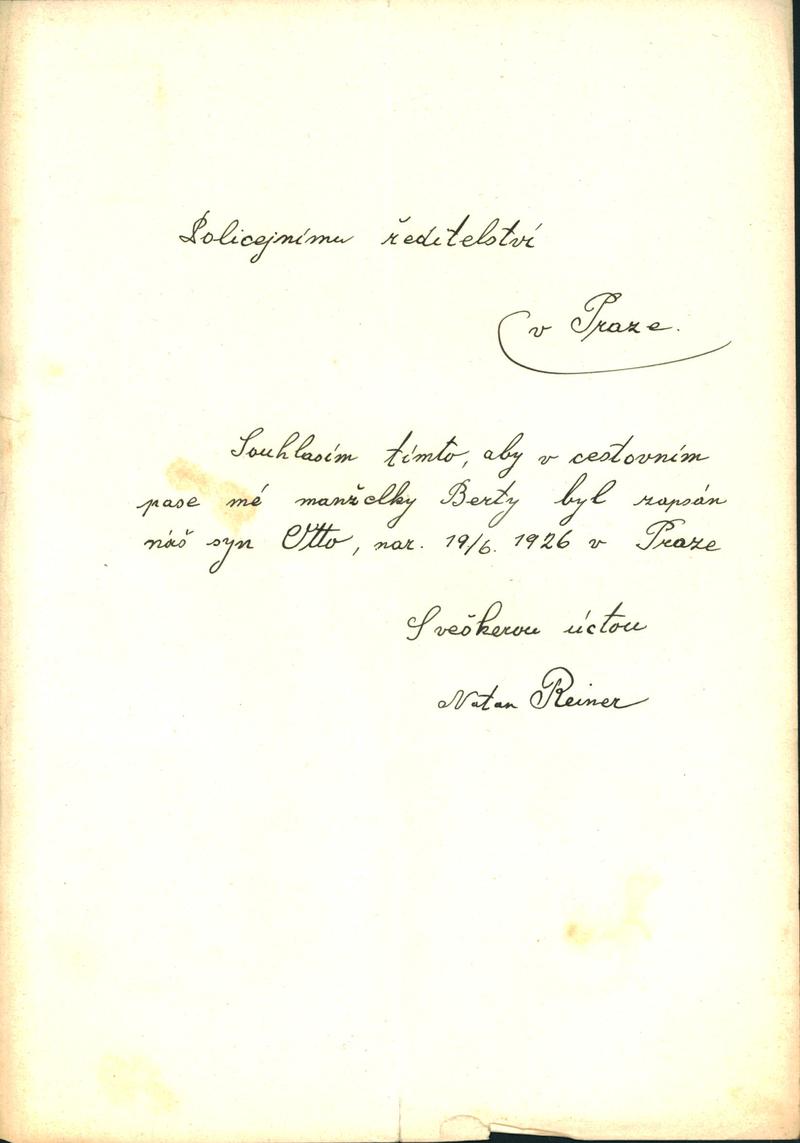 Policejnímu ředitelství
v Praze.
Souhlasím tímto, aby v cestovním
pase mé manželky Berty byl zapsán
náš syn Otto, nar. 19/6. 1926 v Praze
S veškerou úctou
Natan Reiner